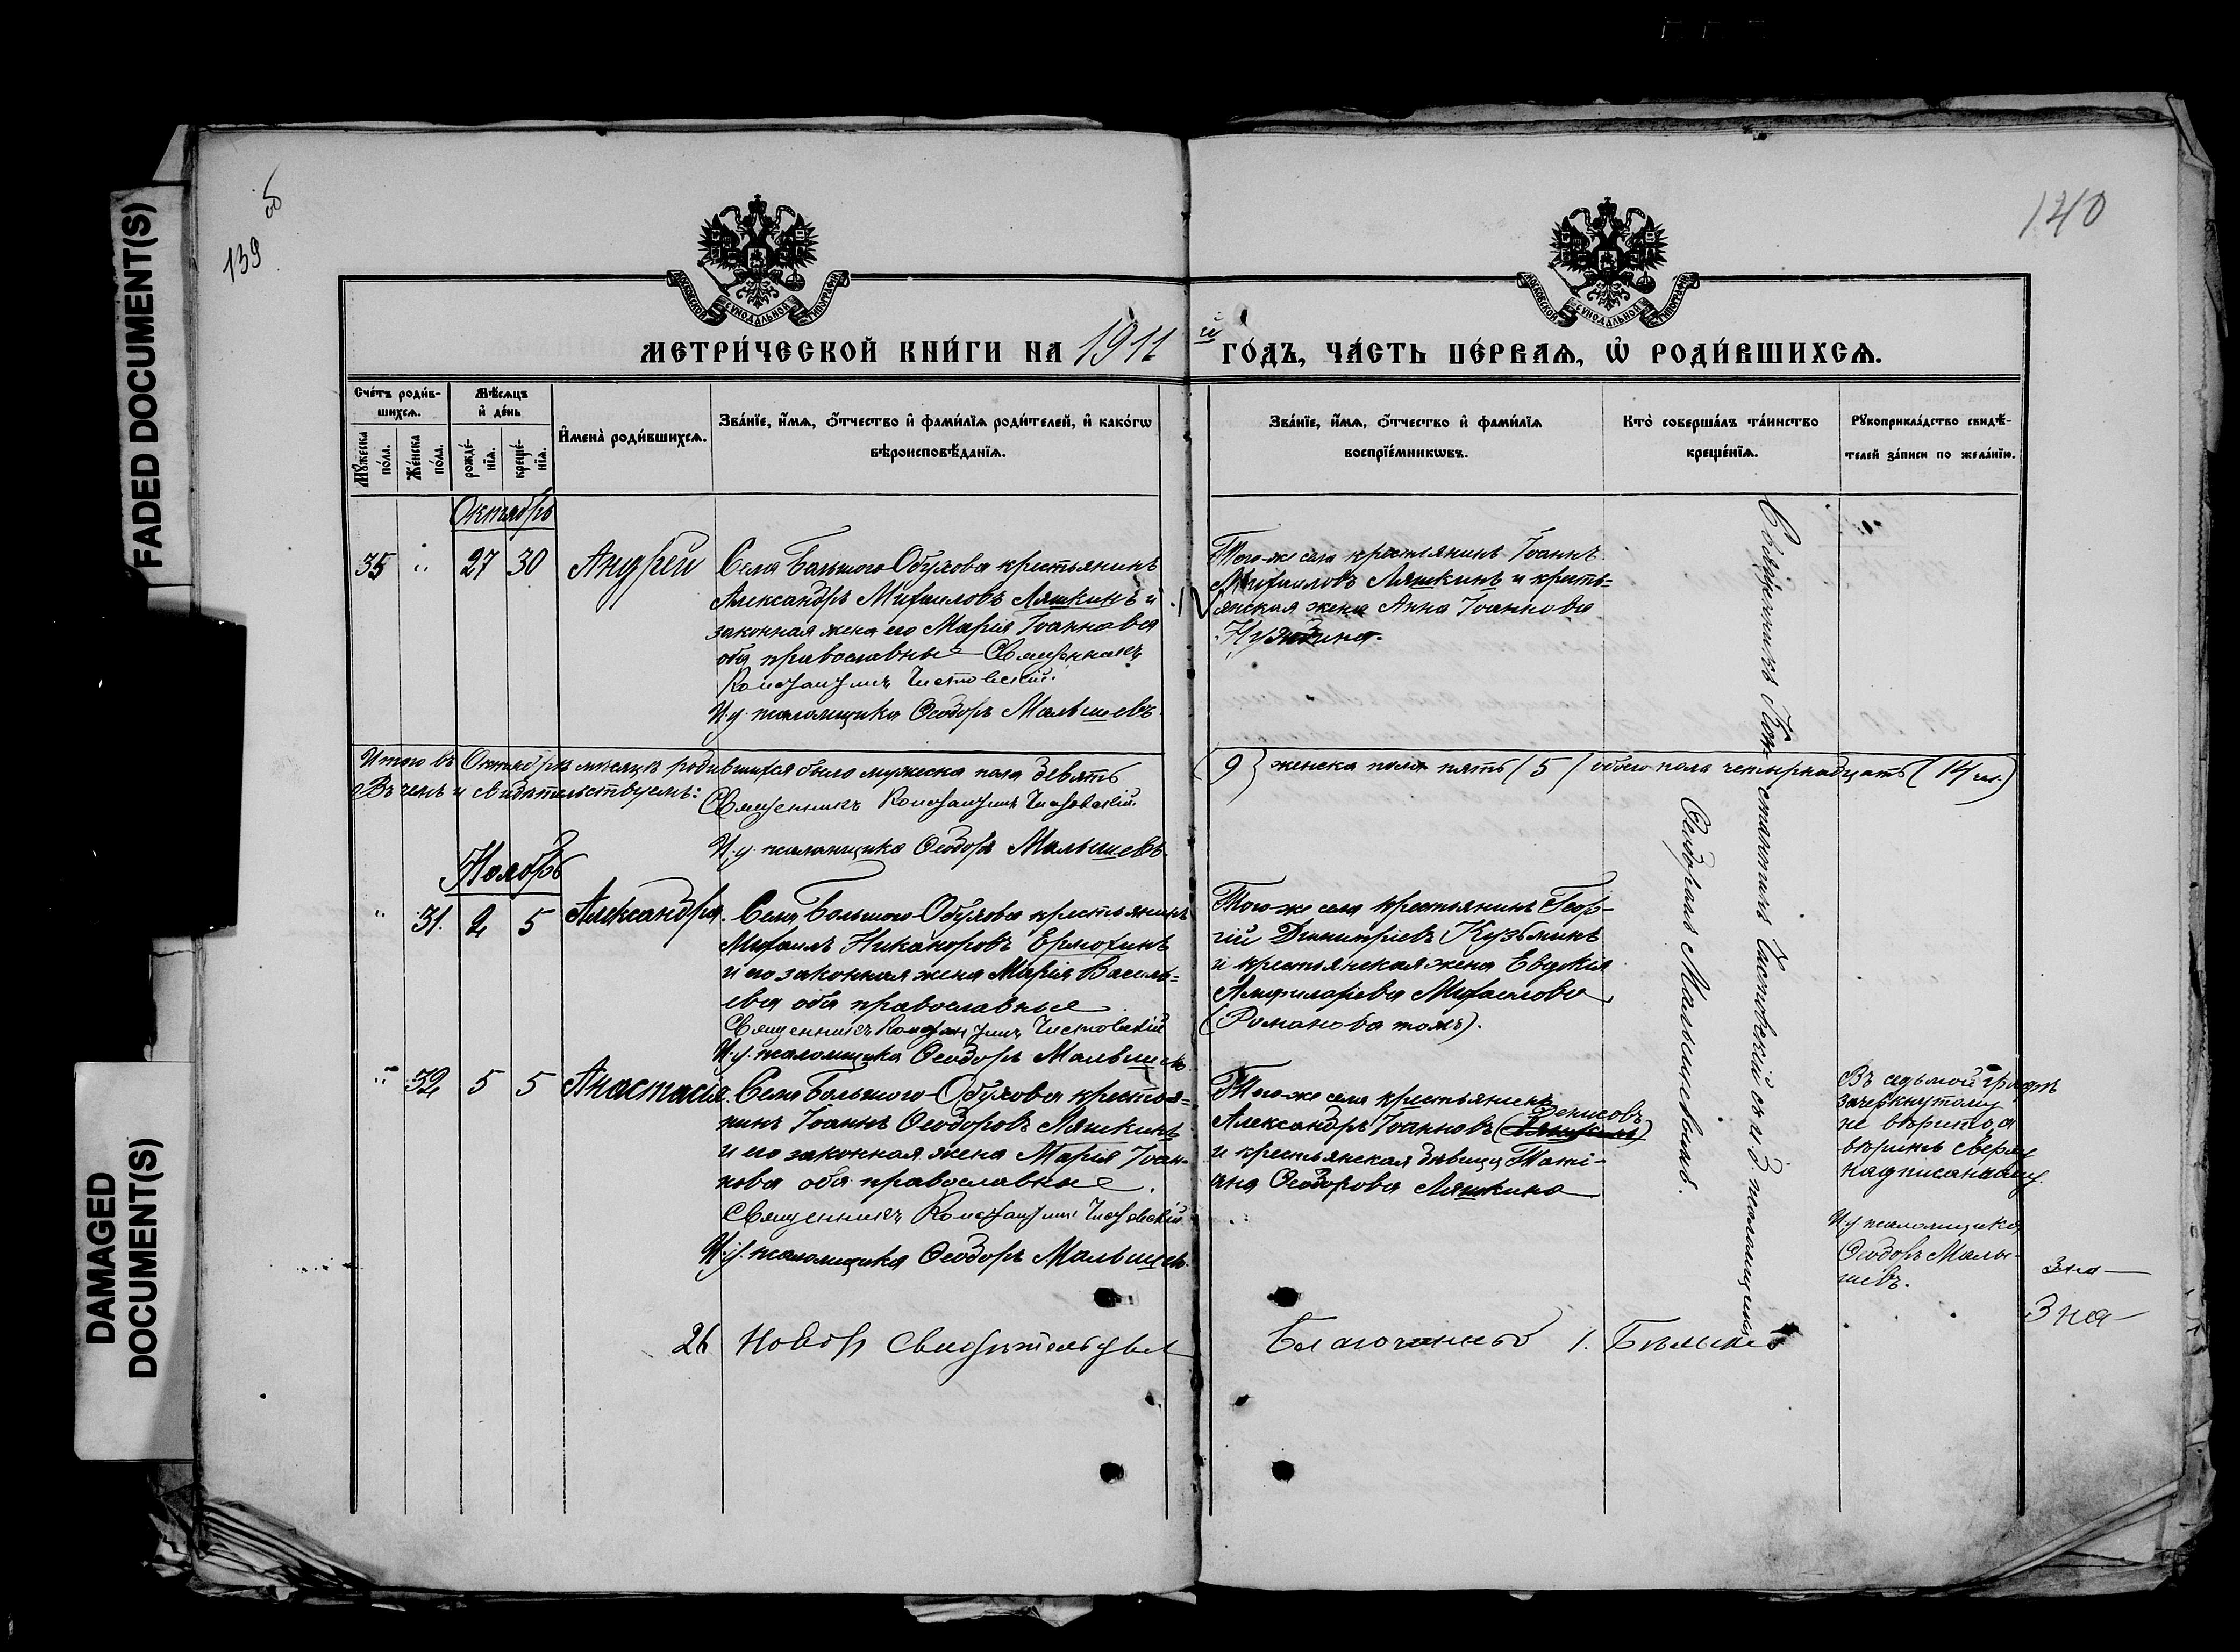 FADED DOCUMENT(S)
DAMAGED
DOCUMENT(S)
об
139
140
МОСКОВСКОЙ СѴНОДАЛЬНОЙ ТИПОГРАФІИ
МОСКОВСКОЙ СѴНОДАЛЬНОЙ ТИПОГРАФІИ
МЕТРИ́ЧЕСКОЙ КНИ́ГИ НА 1911 й ГО́ДЪ, ЧА́СТЬ ПЕ́РВАѦ, Ѽ РОДИ́ВШИХСѦ.
Сче́тъ роди́в-
шихсѧ.
Мꙋ́жеска
по́ла.
Же́нска
по́ла.
Мѣ́сѧцъ
и҆ де́нь
рожде́-
нїѧ.
креще́-
нїѧ.
И҆мена̀ роди́вшихсѧ.
Зва́нїе, и҆́мѧ, ѻ҆́тчество и҆ фами́лїѧ роди́телей, и҆ како́гѡ
вѣроисповѣ́данїѧ.
Зва́нїе, и҆́мѧ, ѻ҆́тчество и҆ фами́лїѧ
воспрїе́мникѡвъ.
Кто̀ соверша́лъ та́инство
креще́нїѧ.
Рꙋкоприкла́дство свидѣ́-
телей за́писи по жела́нїю.
Октябрь
35 " 27 30 Андрей
Села Большого Обухова крестьянинъ
Александръ Михаиловъ Ляшкинъ и
законная жена его Марія Іоаннова
оба православные Священникъ
Константинъ Чистовскій.
И.д. псаломщика Ѳеодоръ Малышевъ.
Того-же села крестьянинъ Іоаннъ
Михаиловъ Ляшкинъ и кресть=
янская жена Анна Іоаннова
Итого въ Октябрѣ мѣсяцѣ родившихся было мужеска пола девять (9) женска пола пять (5) обоего пола четырнадцать (14 чел.)
Въ чемъ и свидѣтельствуемъ:
Священникъ Константинъ Чистовскій
И.д. псаломщика Ѳеодоръ Малышевъ.
Ноябрь
" 31. 2 5 Александра.
Села Большого Обухова крестьянинъ
Михаилъ Никаноровъ Ермохинъ
и его законная жена Марія Василь=
ева оба православные
Священникъ Константинъ Чистовскій
И.д. псаломщика Ѳеодоръ Малышевъ.
Того-же села крестьянинъ Геор-
гій Димитріевъ Кузьминъ
и крестьянская жена Евдокія
Амфилохіева Михаилова
(Романова тожъ).
" 32 5 5 Анастасія.
Села Большого Обухова крестья=
нинъ Іоаннъ Ѳеодоровъ Ляшкинъ
и его законная жена Марія Іоан-
нова оба православные.
Священникъ Константинъ Чистовскій
И.д. псаломщика Ѳеодоръ Малышевъ.
Того-же села крестьянинъ
Денисовъ
Александръ Іоанновъ (Ляшкинъ)
и крестьянская дѣвица Тати-
ана Ѳеодорова Ляшкина
Священникъ Константинъ Чистовскій съ и.д. псаломщика
Ѳеодоромъ Малышевымъ.
Въ седьмой графѣ
зачеркнутому
не вѣрить, а
вѣрить сверху
надписанному.
И.д. псаломщика
Ѳеодоръ Малы-
шевъ.
26 Ноябр Свидѣтельствовал Благочинный І.